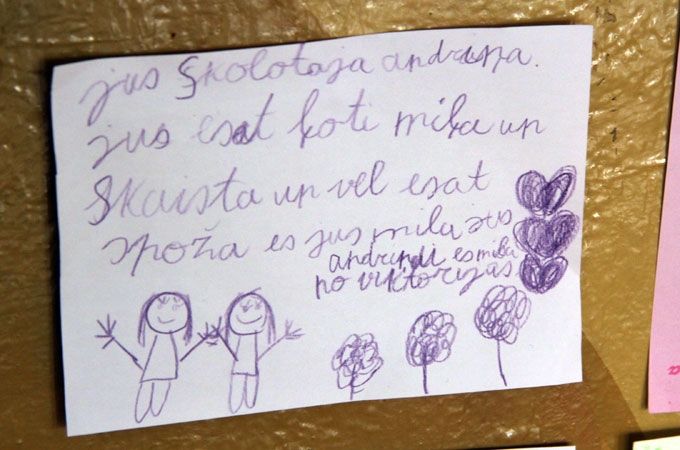 jus skolotaja andruņa.
jus esat ļoti mīļa un
skaista un vel esat
spoža es jus mila jus
andrindi es mila
no viktorijas